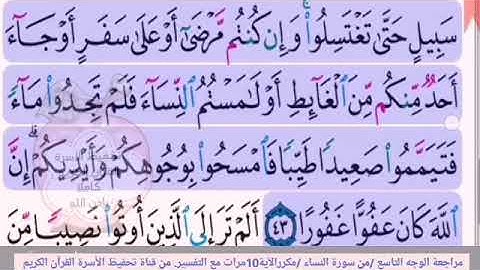 سَبِيلٍ حَتَّىٰ تَغْتَسِلُوا۟ ۚ وَإِن كُنتُم مَّرْضَىٰٓ أَوْ عَلَىٰ سَفَرٍ أَوْ جَآءَ
أَحَدٌ مِّنكُم مِّنَ ٱلْغَآئِطِ أَوْ لَـٰمَسْتُمُ ٱلنِّسَآءَ فَلَمْ تَجِدُوا۟ مَآءً
فَتَيَمَّمُوا۟ صَعِيدًا طَيِّبًا فَٱمْسَحُوا۟ بِوُجُوهِكُمْ وَأَيْدِيكُمْ ۗ إِنَّ
ٱللَّهَ كَانَ عَفُوًّا غَفُورًا ٤٣ أَلَمْ تَرَ إِلَى ٱلَّذِينَ أُوتُوا۟ نَصِيبًا مِّنَ
مراجعة الوجه التاسع /من سورة النساء /مكررالاية10مرات مع التفسير. من قناة تحفيظ الأسرة القرآن الكريم